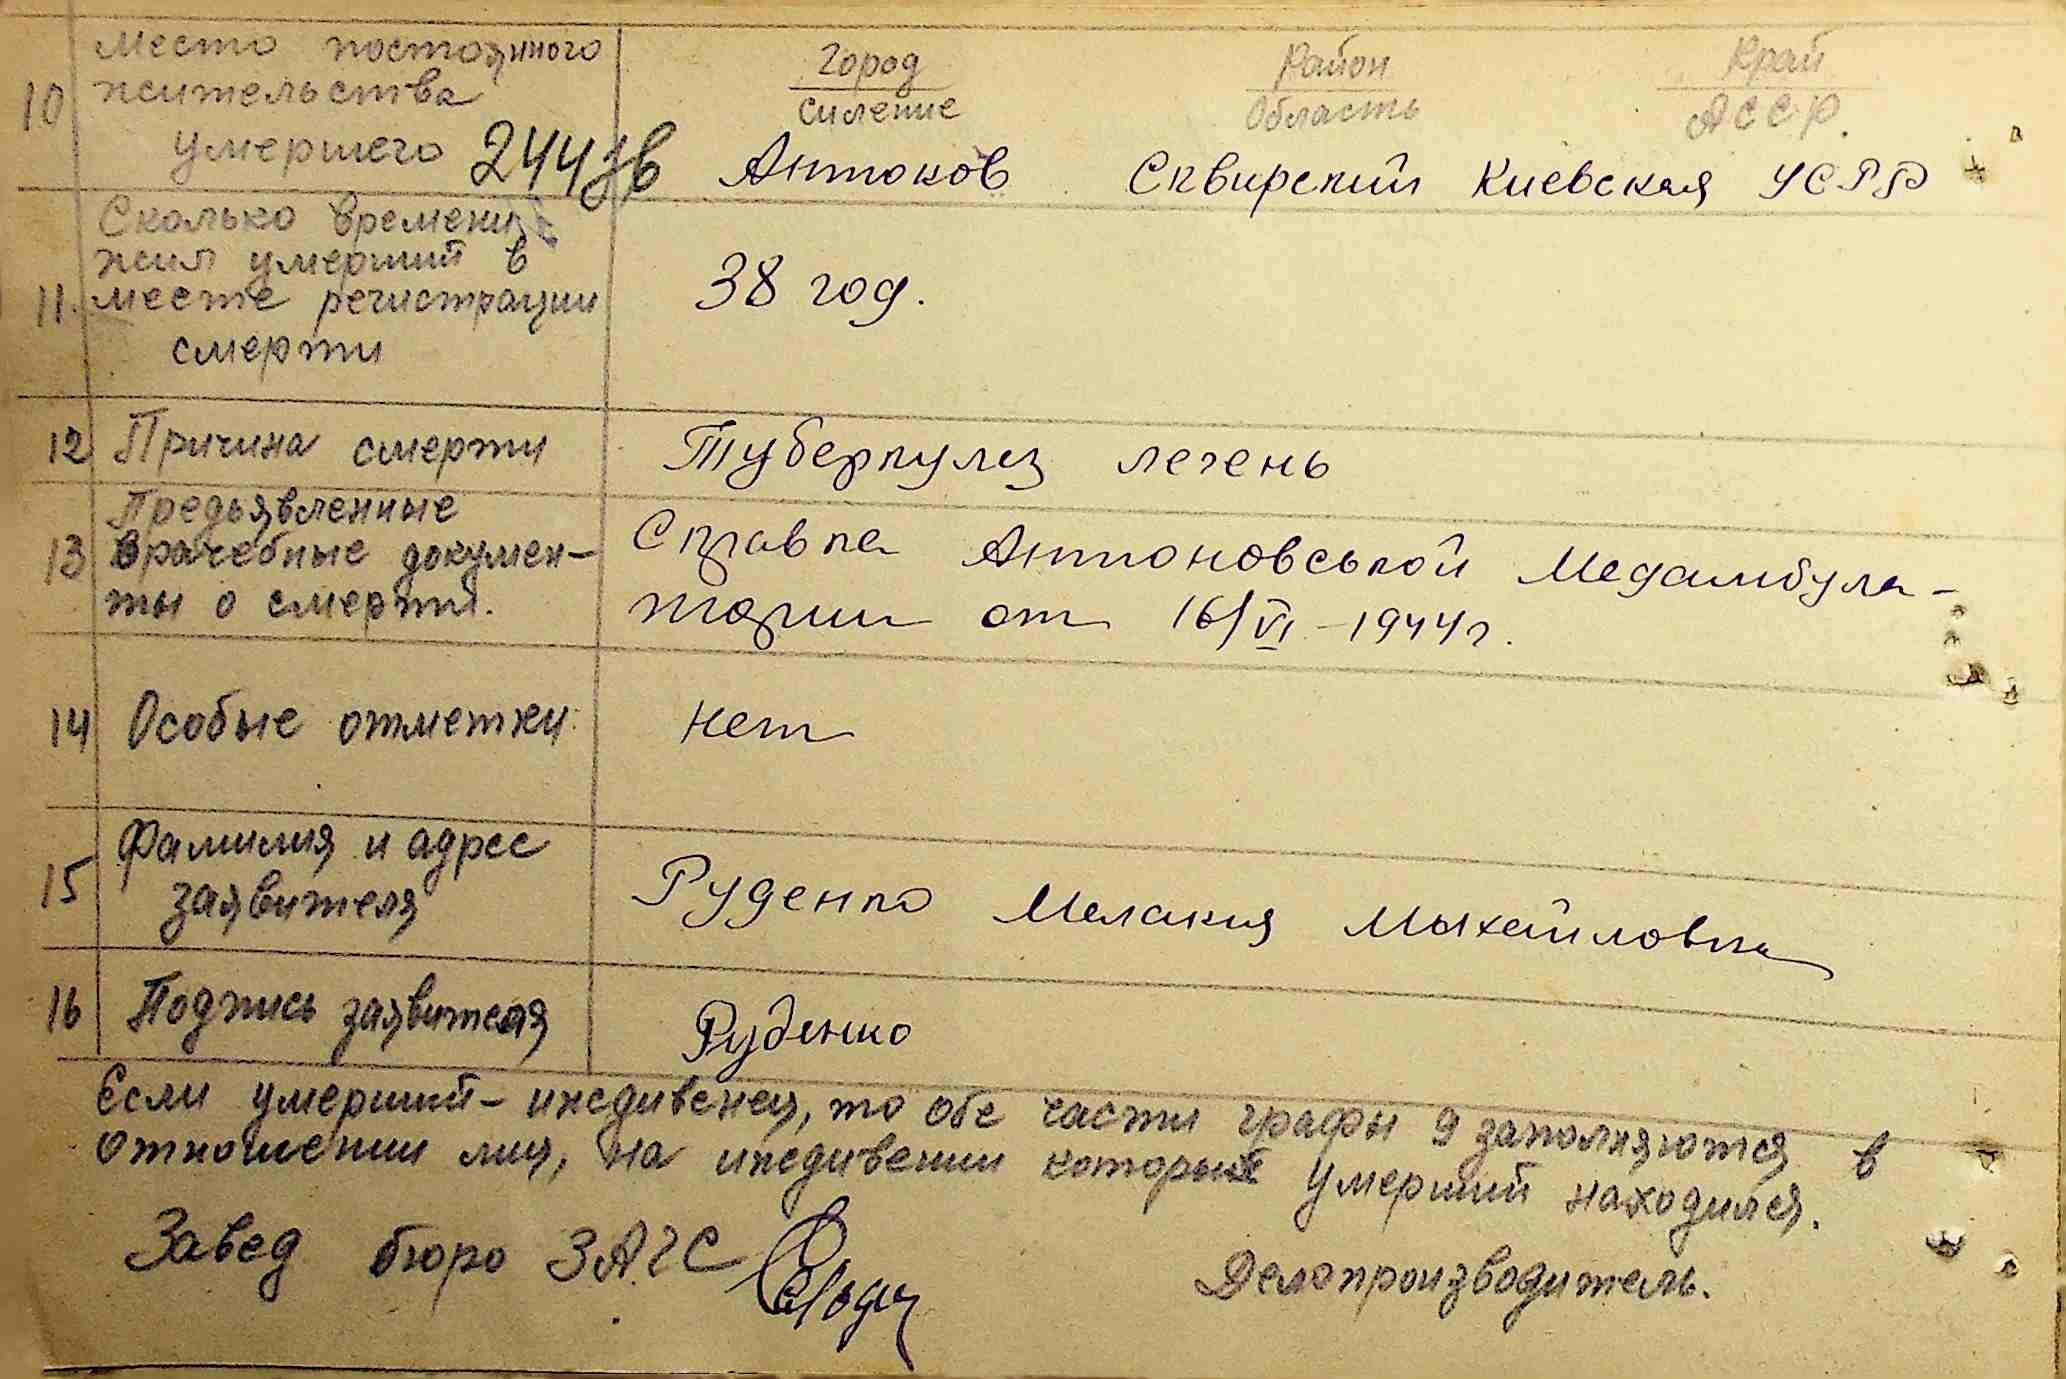 10 Место постоянного жительства умершего
Город Район Край
Силение Область АССР.
Антонов Сквирский Киевская УСРР
11. Сколько времени
жил умерший в
месте регистрации
смерти
38 год.
12 Причина смерти Туберкулез легень
13 Предъявленные
врачебные докумен-
ты о смерти.
Справка Антоновськой Медамбула-
тории от 16/VI - 1944 г.
14 Особые отметки нет
15 Фамилия и адрес
заявителя
Руденко Мелания Мыхайловна
16 Подпись заявителя Руденко
Если умерший - иждивенец, то обе части графы 9 заполняются в
отношении лиц, на иждивении которых умерший находился.
Завед бюро ЗАГС Делопроизводитель.